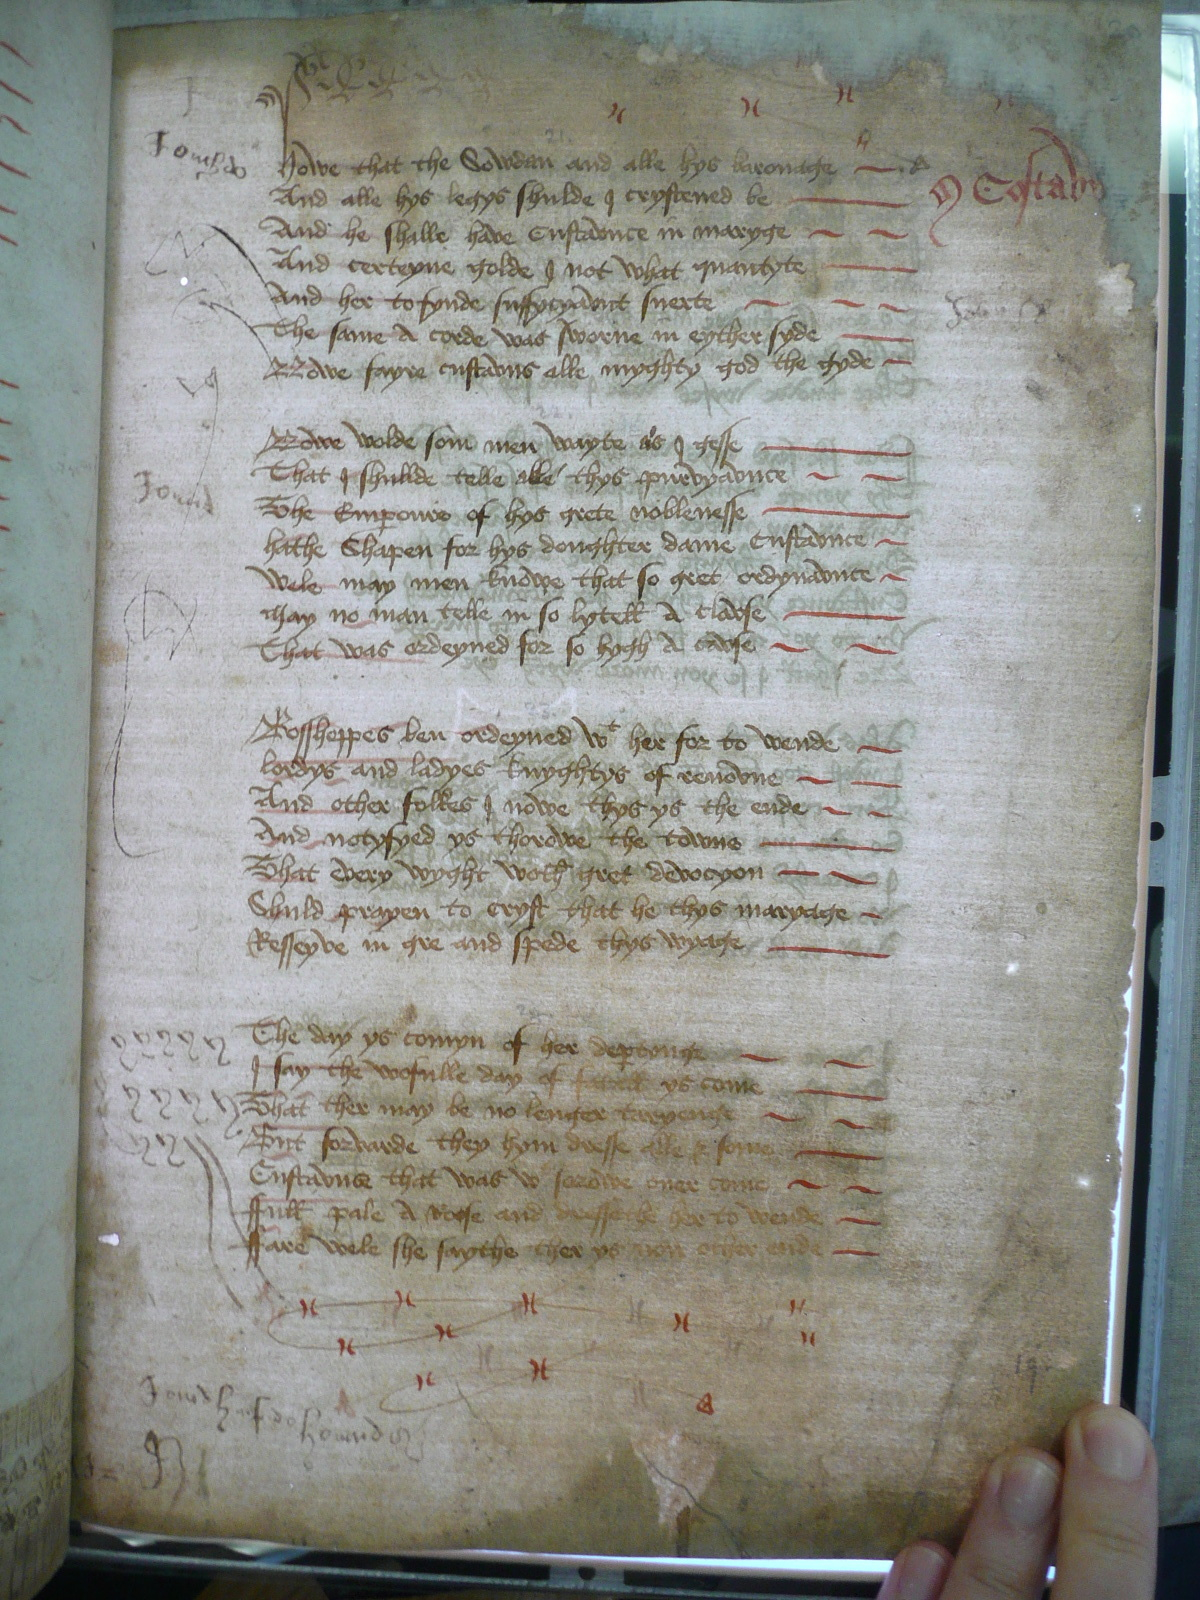 Howe that the Sowdan and alle hys baronage
And alle hys legys shulde I crystened be
And he shalle have Custaunce in maryge
And certeyne golde I not what quantyte
And her to fynde suffycyaunt suerte
The same A corde was sworne in eyther syde
Nowe fayre custauns alle myghty god the gyde
Nowe wolde som men wayte as I gesse
That I shullde telle alle thys purvyaunce
The Empoure of hys grete noblenesse
hathe Shapen for hys doughter dame Custaunce
Wele may men knowe that so gret ordynaunce
May no man telle in so lytell A clause
That was ordeyned for so hygh A cause
Bosshoppes ben ordeyned wt her for to wende
lordys and ladyes knyghtys of renowne
And other folkes I nowe thys ys the ende
And notyfyed ys thorowe the towne
That every wyght woth gret devocyon
Shuld prayen to cryst that he thys maryage
Resseyve in gre and spede thys vyage
The day ys comyn of her deptynge
I say the wofulle day of ys come
That ther may be no lenger taryenge
But forwarde they hym dresse alle & some
Custaunse that was w sorowe over come
ffull pale A rose and dressethe her to wende
ffare wele she saythe ther ys non other ende